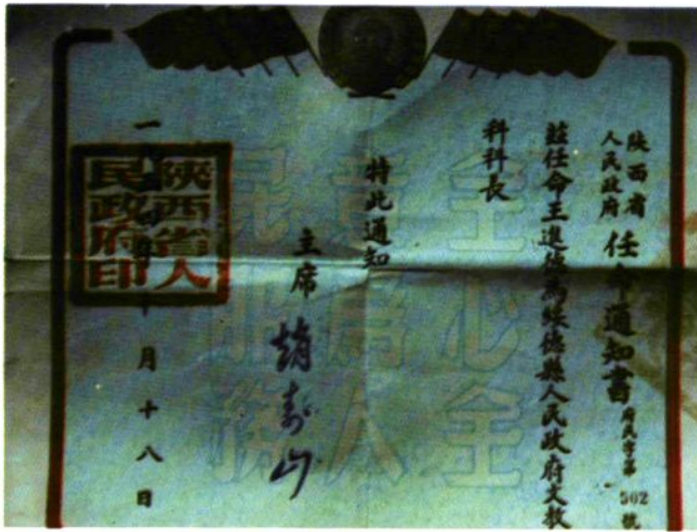 陝西省
人民政府
任命通知書
府民字第 502 號
茲任命王進德爲綏德縣人民政府文教
科科長
特此通知
主席 趙壽山
月十八日
陝西省人
民政府印
全心全
意爲人
民服務